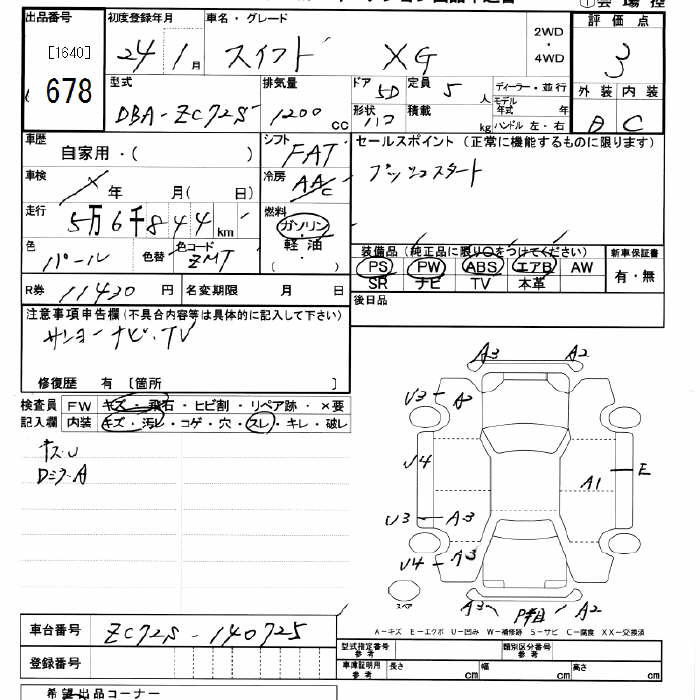 出品番号 初度登録年月 車名・グレード 2WD・4WD 評価点
[1640] 24 1月 スイフト XG 3
678
型式 排気量 ドア 5D 定員 5人 ディーラー・並行 外装 内装
DBA-ZC72S 1200cc 形状 ハコ 積載 kg モデル年式 年 ハンドル 左・右 B C
車歴 自家用・( ) シフト FAT セールスポイント (正常に機能するものに限ります)
車検 年 月(日) 冷房 AAC プッシュスタート
走行 5万6千844km 燃料 ガソリン・軽油 ( )
色 パール 色替 色コード ZMT 装備品 (純正品に限り○をつけてください) 新車保証書
PS PW ABS エアB AW 有・無
SR ナビ TV 本革
R券 11430円 名変期限 月 日 後日品
注意事項申告欄 (不具合内容等は具体的に記入して下さい)
サンヨーナビ・TV
修復歴 有 [箇所 ]
検査員 FW キズ・飛石・ヒビ割・リペア跡・×要
記入欄 内装 キズ・汚レ・コゲ・穴・スレ・キレ・破レ
キズ・U
A3 A2
U3 A2
U4 A1 E
U3 A3
U4 A3
スペア
A3 A2
A-キズ E-エクボ U-凹み W-補修跡 S-サビ C-腐食 XX-交換済
車台番号 ZC72S-140725 型式指定番号 参考 類別区分番号 参考
登録番号 車庫証明用 参考 長さ cm 幅 cm 高さ cm
希望出品コーナー